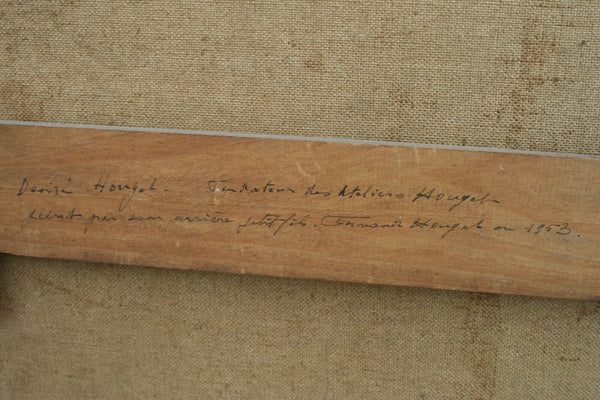 Désiré Houget. Fondateur des Ateliers Houget
peint par son arrière petit fils. Fernand Houget en 1953.